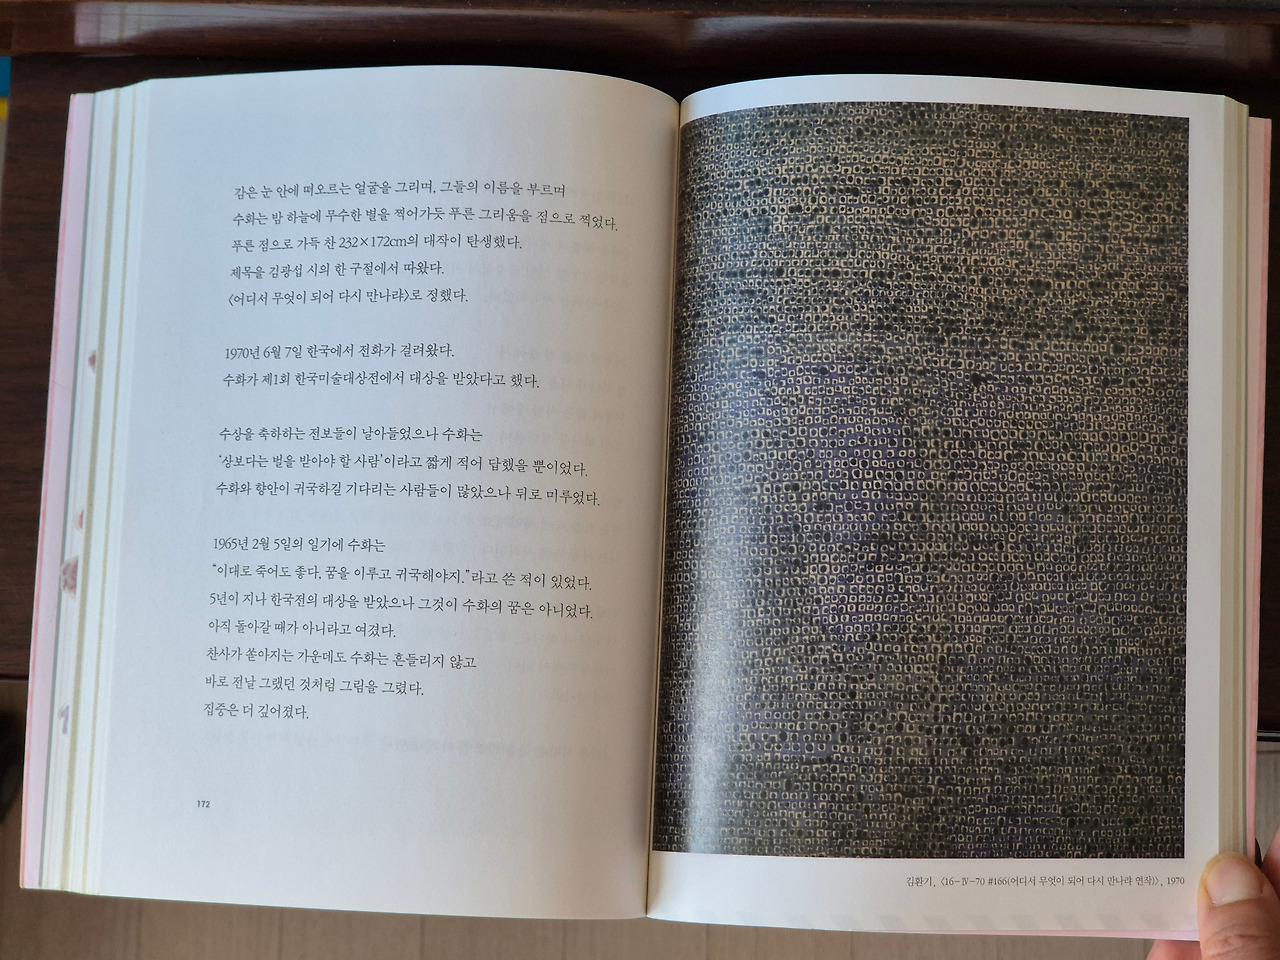 감은 눈 안에 떠오르는 얼굴을 그리며, 그들의 이름을 부르며
수화는 밤 하늘에 무수한 별을 찍어가듯 푸른 그리움을 점으로 찍었다.
푸른 점으로 가득 찬 232×172cm의 대작이 탄생했다.
제목을 김광섭 시의 한 구절에서 따왔다.
〈어디서 무엇이 되어 다시 만나랴〉로 정했다.
1970년 6월 7일 한국에서 전화가 걸려왔다.
수화가 제1회 한국미술대상전에서 대상을 받았다고 했다.
수상을 축하하는 전보들이 날아들었으나 수화는
‘상보다는 벌을 받아야 할 사람’이라고 짧게 적어 답했을 뿐이었다.
수화와 향안이 귀국하길 기다리는 사람들이 많았으나 뒤로 미루었다.
1965년 2월 5일의 일기에 수화는
“이대로 죽어도 좋다, 꿈을 이루고 귀국해야지.”라고 쓴 적이 있었다.
5년이 지나 한국전의 대상을 받았으나 그것이 수화의 꿈은 아니었다.
아직 돌아갈 때가 아니라고 여겼다.
찬사가 쏟아지는 가운데도 수화는 흔들리지 않고
바로 전날 그랬던 것처럼 그림을 그렸다.
집중은 더 깊어졌다.
172
김환기, 〈16-Ⅳ-70 #166(어디서 무엇이 되어 다시 만나랴 연작)〉, 1970